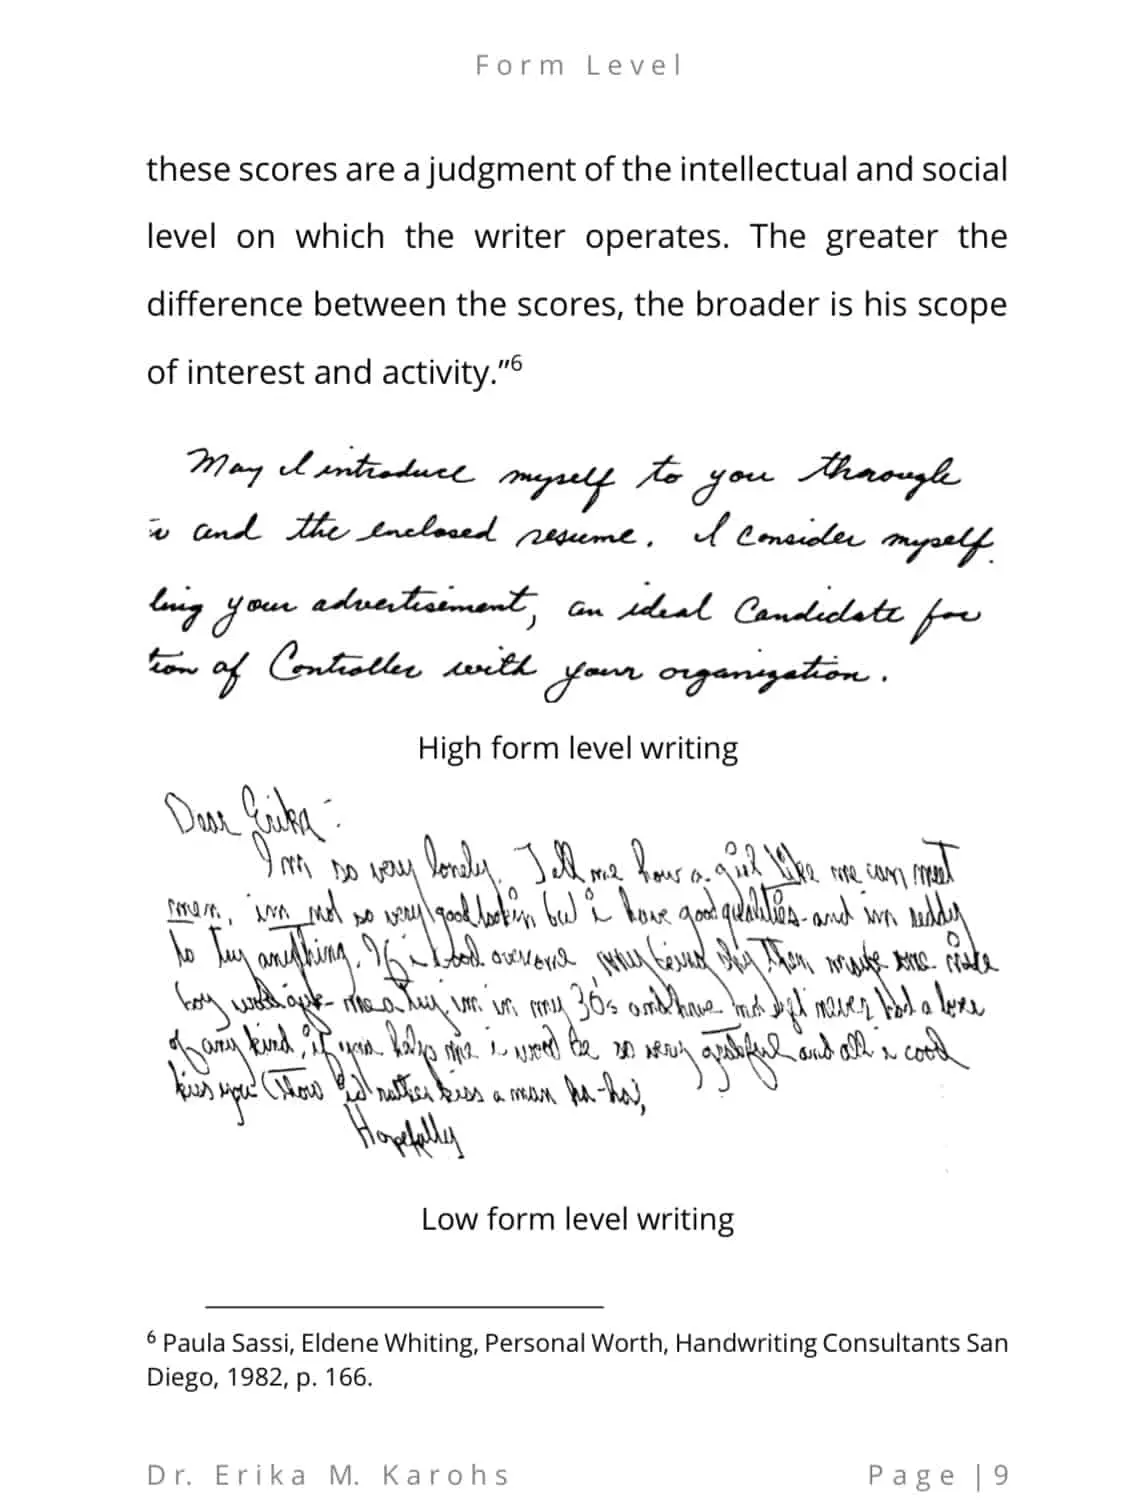 Form Level
these scores are a judgment of the intellectual and social
level on which the writer operates. The greater the
difference between the scores, the broader is his scope
of interest and activity."6
May I introduce myself to you through
is and the enclosed resume. I consider myself
ling your advertisement, an ideal Candidate for
tion of Controller with your organization.
High form level writing
Dear Erika -:
I'm so very lonely. Tell me how a girl like me can meet
men, im not so very good lookin but i have good qualities - and im reddy
to try anything. If i
boy me a try. im in my 30's and have never had a love
of any kind, if you help me i wood be so very grateful and all i cood
kiss you (Thow id rather kiss a man ha-ha),
Hopefally
Low form level writing
6 Paula Sassi, Eldene Whiting, Personal Worth, Handwriting Consultants San
Diego, 1982, p. 166.
Dr. Erika M. Karohs Page | 9